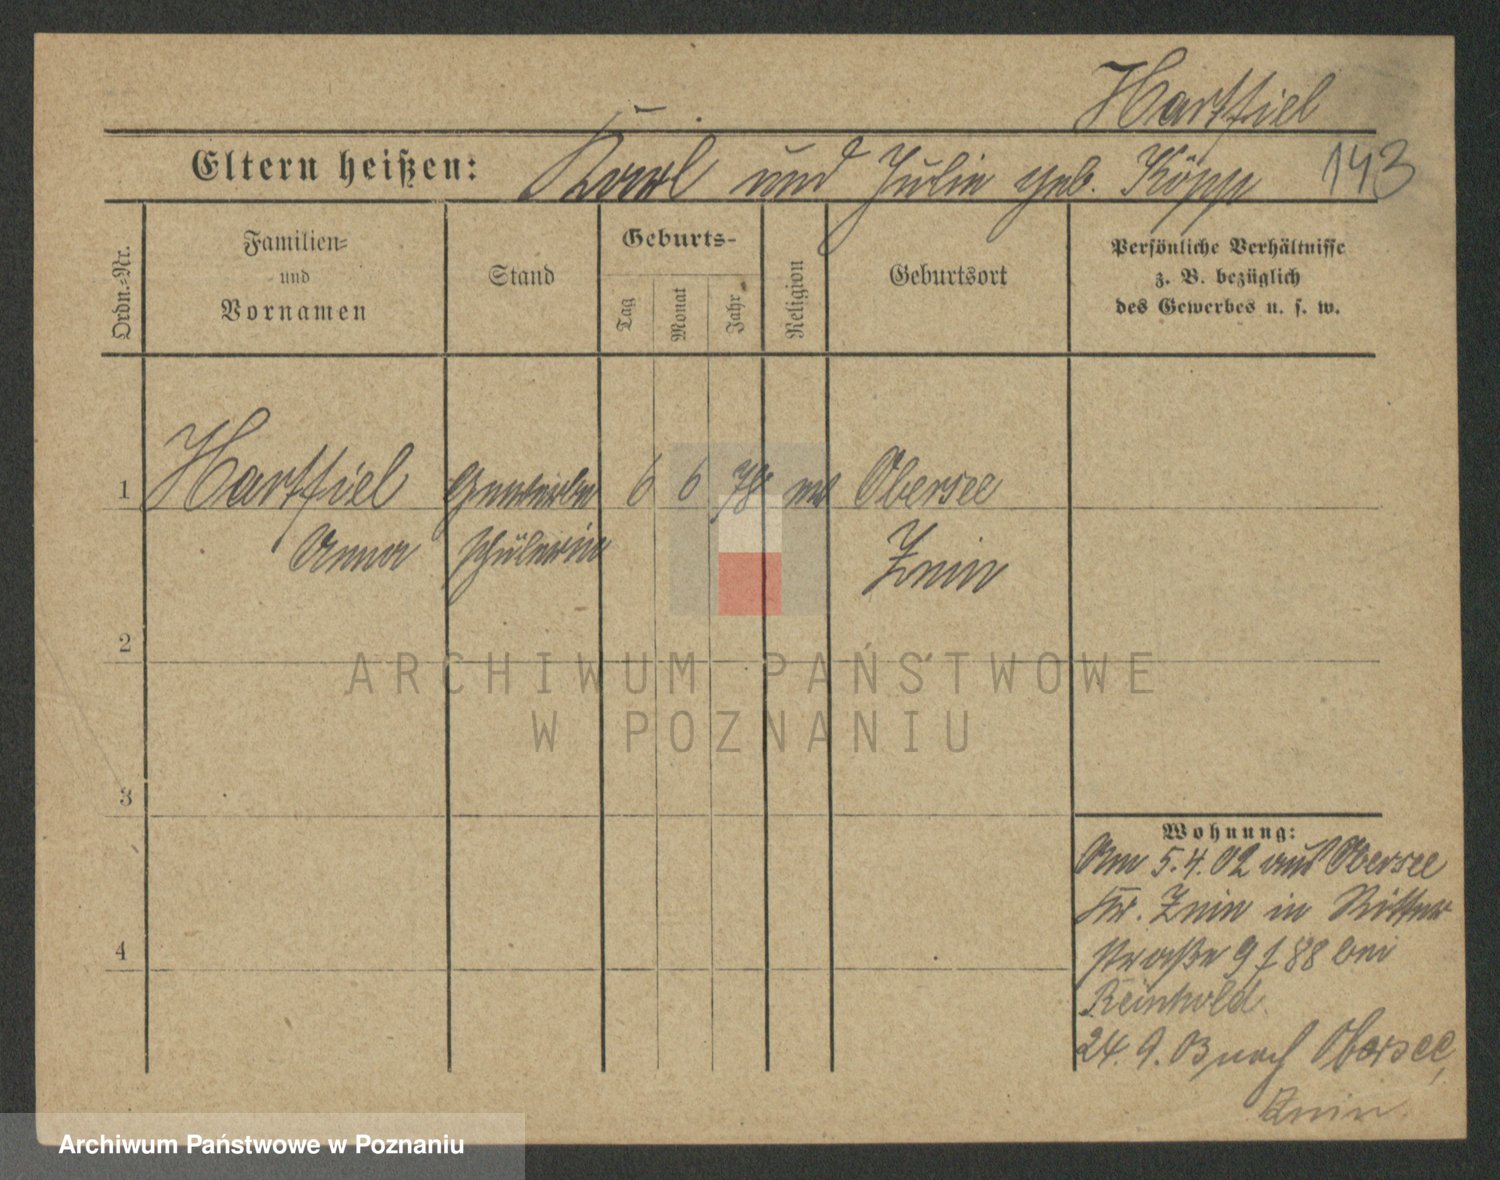 Hartfiel
Eltern heißen: Karl und Julie geb. Köpp 143
Ordn.-Nr.
Familien-
und
Vornamen
Stand
Geburts-
Tag
Monat
Jahr
Religion
Geburtsort
Persönliche Verhältnisse
z. B. bezüglich
des Gewerbes u. s. w.
1 Hartfiel Gewerbe 6 6 78 ev Obersee
Anna schülerin Znin
2
3
4
Wohnung:
Am 5.4.02 aus Obersee
Kr. Znin in Ritter
straße 9 f 88 bei
Reinhold
24.9.03 nach Obersee,
Znin
ARCHIWUM PAŃSTWOWE
W POZNANIU
Archiwum Państwowe w Poznaniu